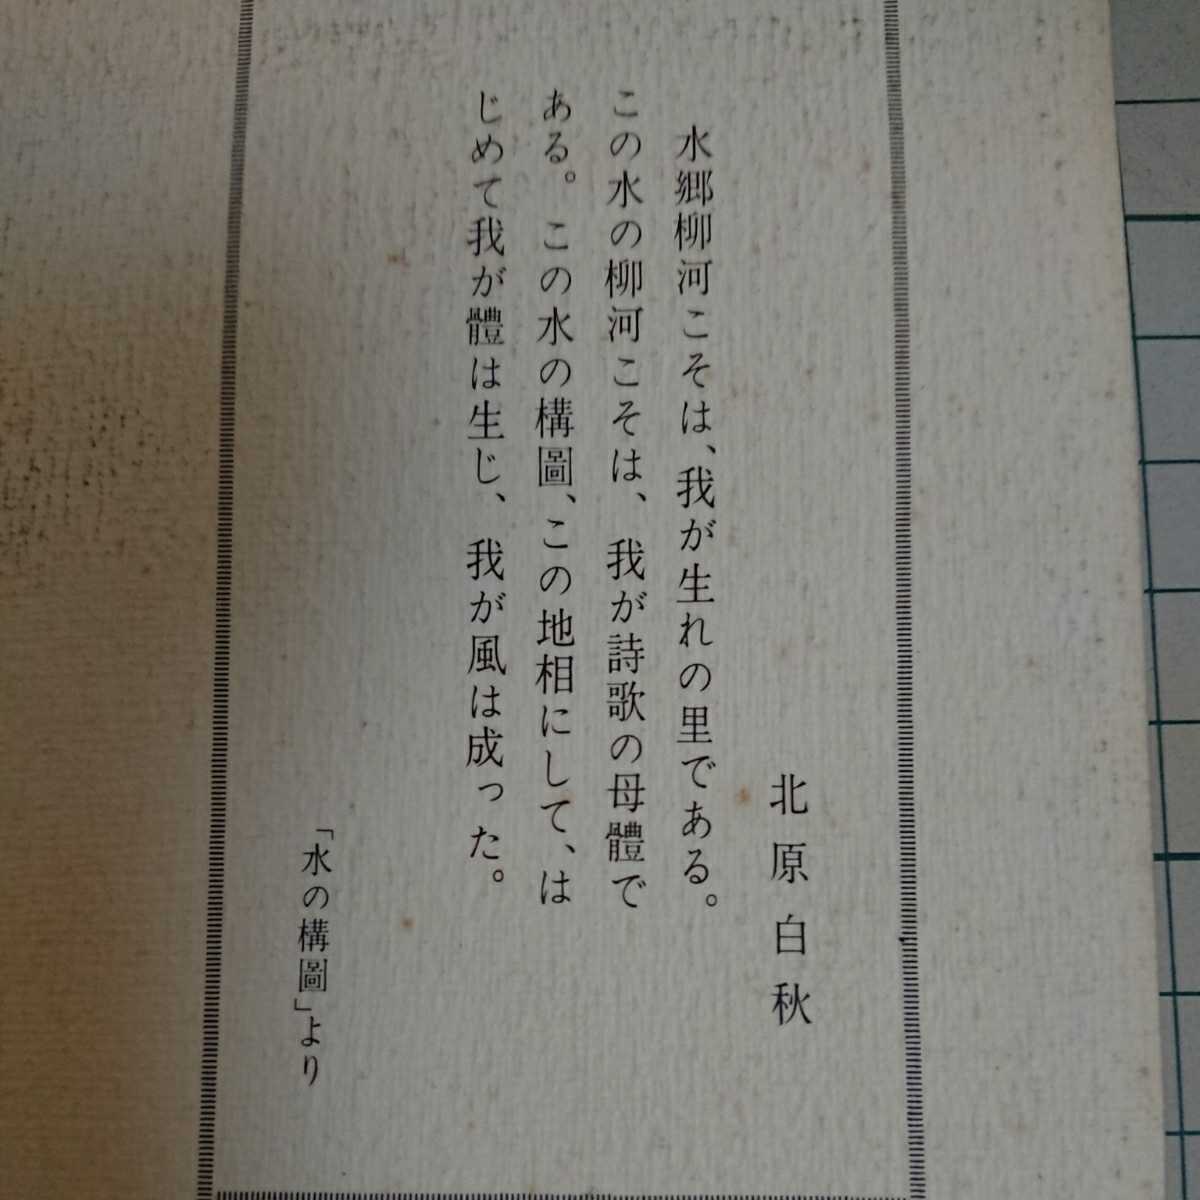 北原白秋
水郷柳河こそは、我が生れの里である。
この水の柳河こそは、我が詩歌の母體で
ある。この水の構圖、この地相にして、は
じめて我が體は生じ、我が風は成った。
「水の構圖」より